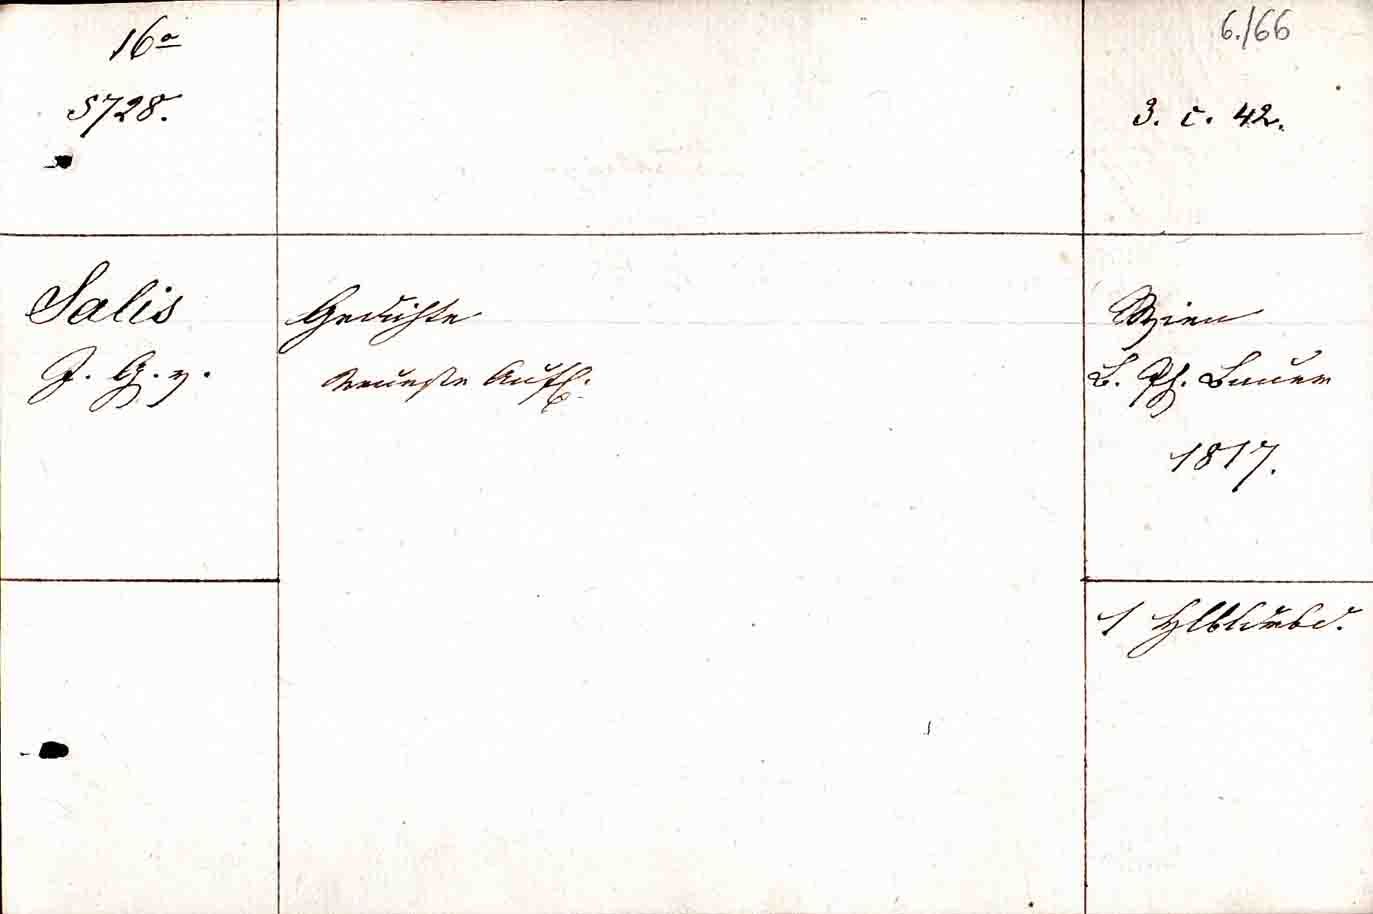 16º
5728.
6./66
3. c. 42.
Salis
J. G. v.
Gedichte
Neueste Aufl.
Wien
B. Ph. Bauer
1817.
1 Hlbldrbd.